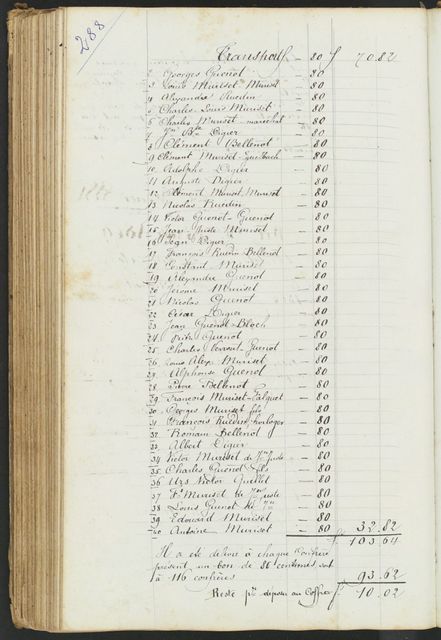 288
Transport — 80 f 70.82
2 Georges Guenot — 80
3 Louis Muriset Muriset — 80
4 Alexandre Ruedin — 80
5 Charles Louis Muriset — 80
6 Charles Muriset maréchal — 80
7 Jn Bte Digier — 80
8 Clément Bellenot — 80
9 Clément Muriset — 80
10 Adolphe Digier — 80
11 Auguste Digier — 80
12 Clément Muriset Muriset — 80
13 Nicolas Ruedin — 80
14 Victor Guenot-Guenot — 80
15 Jean Juste Muriset — 80
16 Jean Digier — 80
17 François Ruedin Bellenot — 80
18 Constant Muriset — 80
19 Alexandre Guenot — 80
20 Jerome Muriset — 80
21 Nicolas Guenot — 80
22 Cesar Digier — 80
23 Jean Guenot-Bloch — 80
24 Fritz Guenot — 80
25 Charles Guenot — 80
26 Louis Alex. Muriset — 80
27 Alphonse Guenot — 80
28 Pierre Bellenot — 80
29 François Muriset-Falquet — 80
30 Georges Muriset fils — 80
31 François Ruedin horloger — 80
32 Romain Bellenot — 80
33 Albert Digier — 80
34 Victor Muriset de Jn Juste — 80
35 Charles Guenot fils — 80
36 Urs Victor Quellet — 80
37 Fs Muriset de Jn Juste — 80
38 Louis Guenot de Jn — 80
39 Edouard Muriset — 80
40 Antoine Muriset — 80 32.82
f 103.64
Il a été délivré à chaque Confrère
présent un bon de 80 centimes soit
à 116 confrères 93.62
Reste pr déposer au Coffre f 10.02